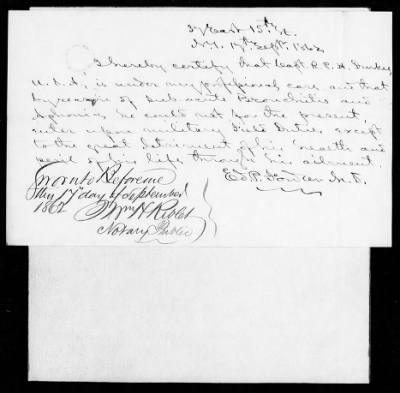 East 15th St.
N.Y. 17th Sept. 1862
I hereby certify that Capt R. C. H.
U.S.A. is under my professional care, and that
by reason of Sub-acute Bronchitis and
Aphonia, he could not for the present
enter upon military field Duties, except
to the great detriment of his health and
peril of his life through his ailment.
Ed. P. M.D.
Sworn to Before me
This 17th day of September
1862
Wm H Riblet
Notary Public